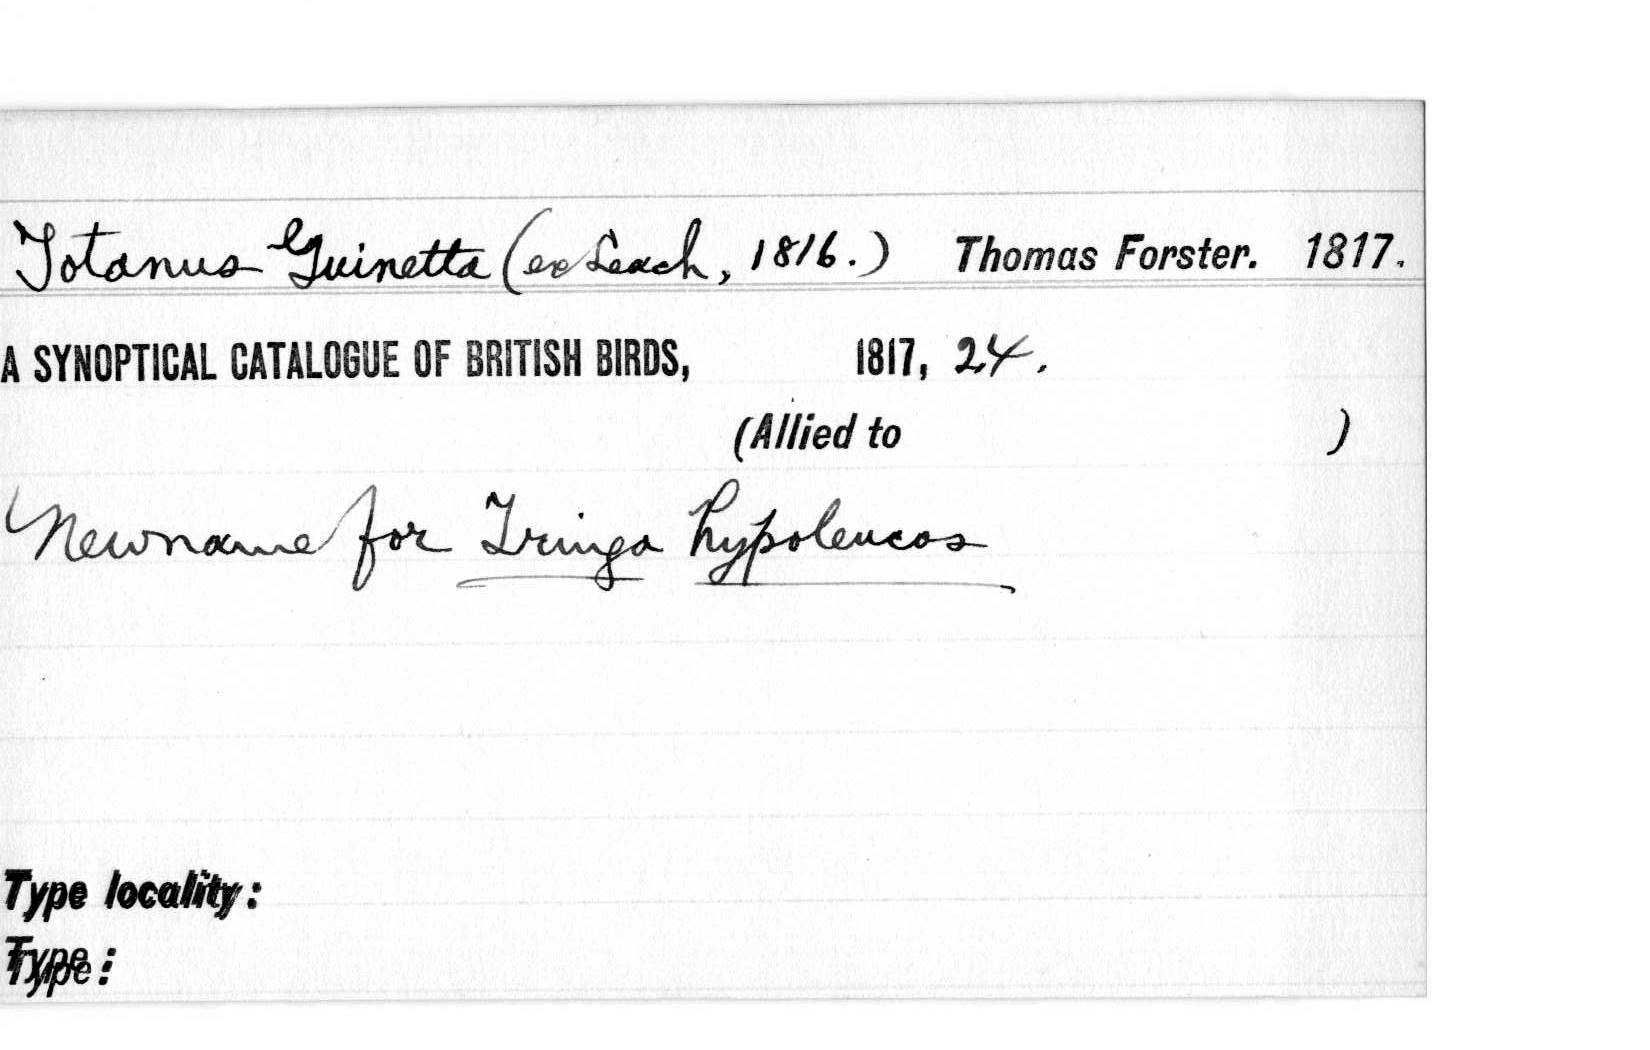 Totanus Guinetta (ex Leach, 1816.) Thomas Forster. 1817.
A SYNOPTICAL CATALOGUE OF BRITISH BIRDS, 1817, 24.
(Allied to )
Newname for Tringa hypoleucos
Type locality:
Type: